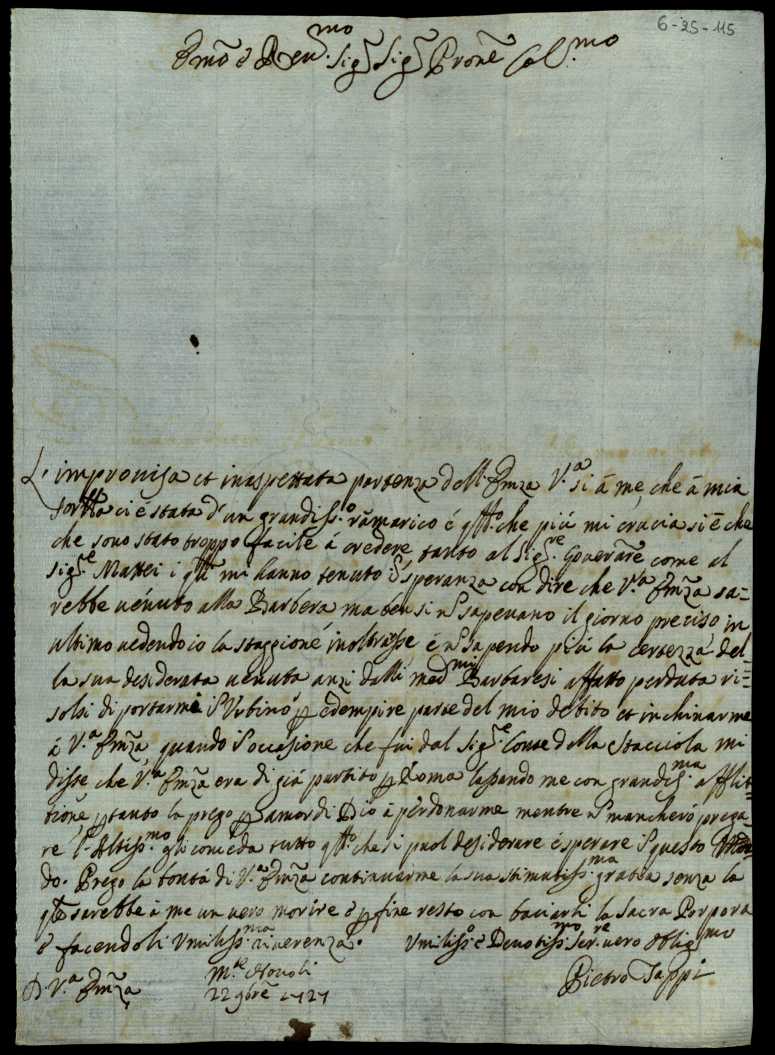 6-25-115
Emõ e Reu.mo Sig.r Sig.r Pronẽ Col.mo
L'improuisa et inaspettata partenza dell'Emza V.a si à me, che à mia
sor.lla ci è stata d'un grandiss.o ramarico è q.llo che più mi crucia si è che
che sono stato troppo facile à credere tanto al Sig.re Gouernãre come al
Sig.re Mattei i q.li mi hanno tenuto ĩ speranza con dire che V.a Emza sa=
rebbe uenuto alla Barbera ma bensi ñ sapeuano il giorno preciso, in
ultimo uedendo io la staggione inoltrasse è ñ sapendo più la certezza del=
la sua desiderata uenuta anzi dalli med.mi Barbaresi affatto perduta ri=
solsi di portarme ĩ Vrbino p edempire parte del mio debito et inchinarme
à V.a Emza quando ĩ occasione che fui dal Sig.re Conte della Stacciola mi
disse che V.a Emza era di già partito p Roma lassando me con grandis.ma afflit=
tione p tanto la prego p amor di Dio à perdonarme mentre ñ mancherò prega
re l'Altiss.mo gli conceda tutto q.llo che si puol desiderare è sperare ĩ questo Mon
do. Prego la bontà di V.a Emza continuarme la sua stimatiss.ma gratia senza la
q.le sarebbe à me un uero morire è p fine resto con baciarli la Sacra Porpora
è facendoli Vmiliss.ma riuerenza. Vmiliss.o è Deuotiss.mo Ser.re uero Oblig.mo
D. V.a Emza
M.te Nouoli
22 9bre 1727
Pietro Tappi